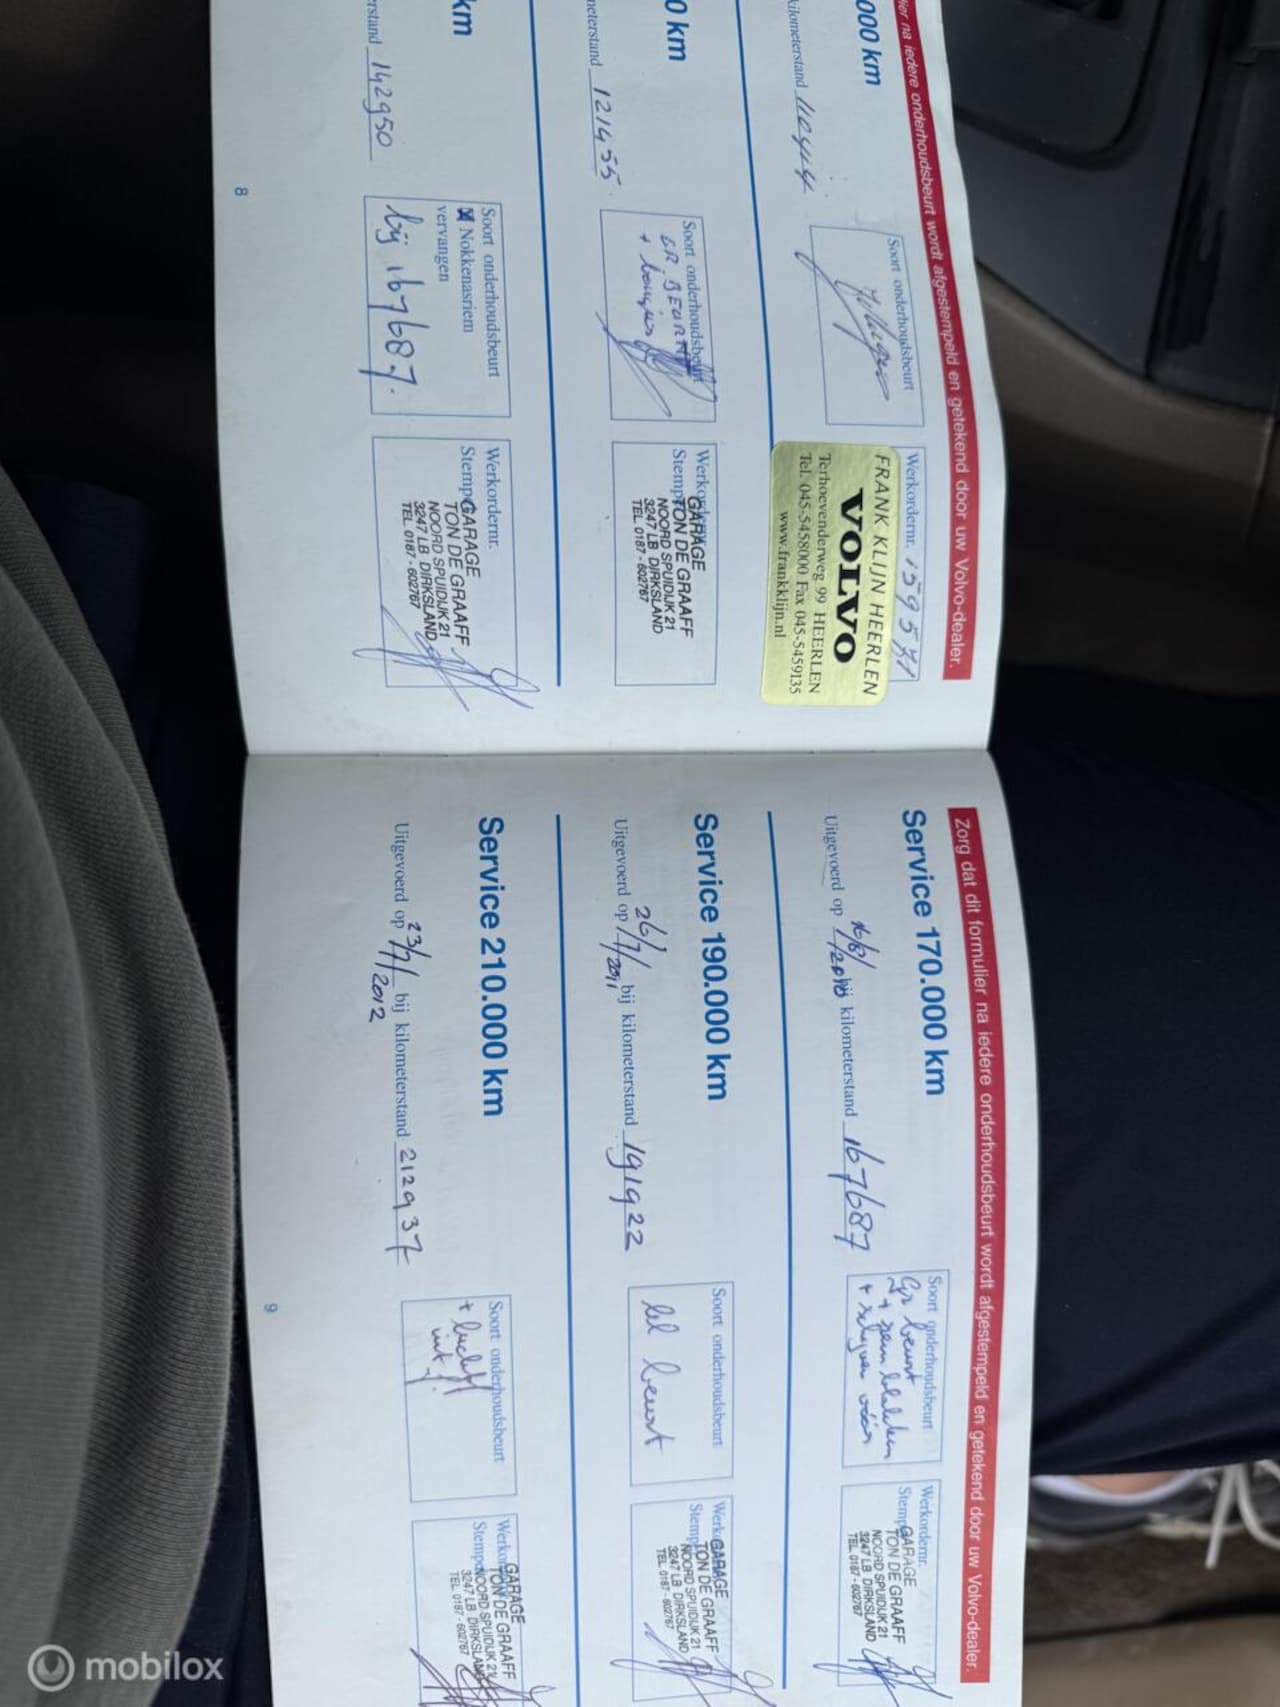 ier na iedere onderhoudsbeurt wordt afgestempeld en getekend door uw Volvo-dealer.
000 km
kilometerstand
Soort onderhoudsbeurt
Werkordernr. 159571
FRANK KLIJN HEERLEN
VOLVO
Terhoevenderweg 99 HEERLEN
Tel. 045-5458000 Fax 045-5459135
www.frankklijn.nl
0 km
neterstand 121455
Soort onderhoudsbeurt
GR. BEURT
+ bougies
Werkordernr.
Stempel
GARAGE
TON DE GRAAFF
NOORD SPUIDIJK 21
3247 LB DIRKSLAND
TEL. 0187 - 602767
km
erstand 142950
Soort onderhoudsbeurt
Nokkenasriem
vervangen
bij 167687.
Werkordernr.
Stempel
GARAGE
TON DE GRAAFF
NOORD SPUIDIJK 21
3247 LB DIRKSLAND
TEL. 0187 - 602767
8
Zorg dat dit formulier na iedere onderhoudsbeurt wordt afgestempeld en getekend door uw Volvo-dealer.
Service 170.000 km
Uitgevoerd op bij kilometerstand 167687
Soort onderhoudsbeurt
Gr beurt
+ remblokken
+ schijven vóór
Werkordernr.
Stempel
GARAGE
TON DE GRAAFF
NOORD SPUIDIJK 21
3247 LB DIRKSLAND
TEL. 0187 - 602767
Service 190.000 km
Uitgevoerd op 26/7/2011 bij kilometerstand 191922
Soort onderhoudsbeurt
kl beurt
Werkordernr.
Stempel
GARAGE
TON DE GRAAFF
NOORD SPUIDIJK 21
3247 LB DIRKSLAND
TEL. 0187 - 602767
Service 210.000 km
Uitgevoerd op 23/7/2012 bij kilometerstand 212937
Soort onderhoudsbeurt
Werkordernr.
Stempel
GARAGE
TON DE GRAAFF
NOORD SPUIDIJK 21
3247 LB DIRKSLAND
TEL. 0187 - 602767
9
mobilox